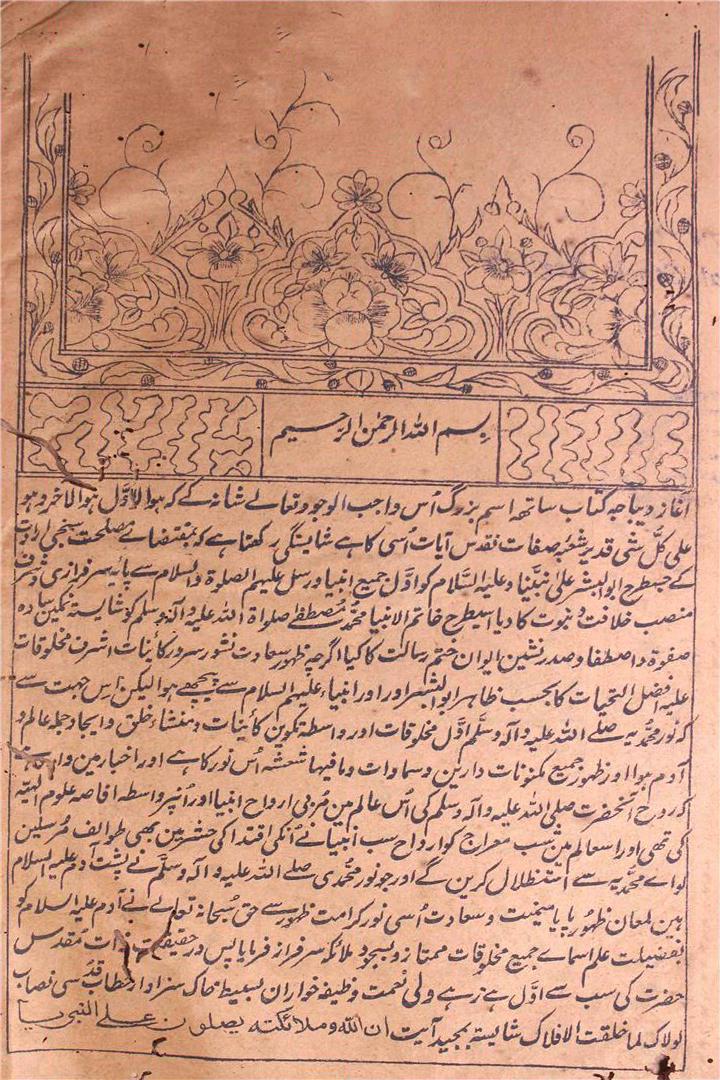 بسم اللہ الرحمٰن الرّحیم
آغاز دیباجہ کتاب ساتھہ اسم بزرگ اُس واجب الوجود تعالےٰ شانہ کے کہ ہوالاوّل ہوالاخر وہو
علی کلّ شی قدیر شعبہ صفات تقدس آیات اُسی کا ہے شایستگی رکھتا ہے کہ بمقتضاے مصلحت سنجی ارادت
کے جسطرح ابوالبشر علیٰ نبیّنا و علیہ السّلام کو اوّل جمیع انبیا و رسل علیہم الصلوۃ والسلام سے پایہ سرفرازی و شرف
منصب خلافت و نبوت کا دیا اسیطرح خاتم الانبیا محمّد مُصطفےٰ صلواۃ اللہ علیہ وآلہ وسلم کو شایستہ تمکین سادہ
صفوۃ و اصطفا و صدر نشین ایوان ختم رسالت کا کیا اگرچہ ظہور سعادت نشور سرور کائنات اشرف مخلوقات
علیہ افضل التحیات کا بحسب ظاہر ابوالبشر اور اور انبیاء علیہم السلام سے پیچھے ہوا لیکن اِس جہت سے
کہ نور محمّدیہ صلّے اللہ علیہ وآلہ وسلّم اوّل مخلوقات اور واسطۂ تکوین کائینات و منشاء خلق و ایجاد جملہ عالم و
آدم ہوا اور ظہور جمیع مکنونات دارین و سماوات و مافیہا شعشہ اُس نور کا ہے اور اخبار مین وارد
کہ روح آنحضرت صلی اللہ علیہ وآلہ وسلم کی اُس عالم مین مُربی ارواح انبیا اور اُنپر واسطہ افاصہ علوم الٰہیّہ
کی تھی اور اس عالم مین شب معراج کو ارواح سب انبیا نے اُنکی اقتدا کی حشر مین بھی طوالف مُرسلین
لواے محمّدیہ سے استظلال کرین گے اور جو نور محمّدی صلے اللہ علیہ وآلہ وسلّم نے پشت آدم علیہ السلام
مین لمعان ظہور پایا میمنیت و سعادت اُسی نور کرامت ظہور سے حق سُبحانہ تعالےٰ نے آدم علیہ السلام کو
بفضیلت علم اسماے جمیع مخلوقات ممتاز و بسجود ملائکہ سرفراز فرمایا پس درحقیقت ذات مُقدس
حضرت کی سب سے اوّل ہے زہے ولی نعمت وظیفہ خواران بسیط خاک سزاوار خطاب قدسی نصاب
لولاک لما خلقت الافلاک شایستہ بمجید آیت ان اللّٰہ وملائکتہ یصلون علی النبی یا